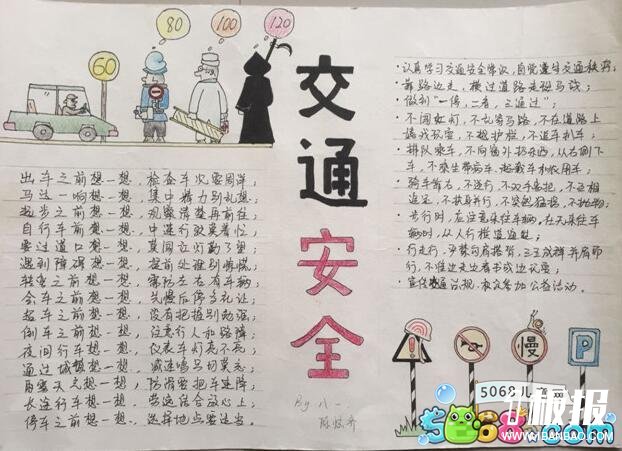 60
80
100
120
交通安全
出车之前想一想,检查车况要周详;
马达一响想一想,集中精力别乱想;
起步之前想一想,观察清楚再前往;
自行车前想一想,中速行驶莫着忙;
要过道口想一想,莫闯红灯勤了望;
遇到障碍想一想,提前处理别惊慌;
转弯之前想一想,需防左右有车辆;
会车之前想一想,先慢后停多礼让;
超车之前想一想,没有把握别勉强;
倒车之前想一想,注意行人和路障;
夜间行车想一想,仪表车灯亮不亮;
通过城镇想一想,减速鸣号切莫忘;
雨雾天气想一想,防滑要把车速降;
长途行车想一想,劳逸结合放心上;
停车之前想一想,选择地点要适当。
·认真学习交通安全常识,自觉遵守交通秩序;
·靠路边走,横过道路走斑马线;
·做到“一停,二看,三通过”;
·不闯红灯,不乱穿马路,不在道路上
嬉戏玩耍,不越护栏,不追车扒车;
·排队乘车,不向窗外扔东西,从右侧下
车,不乘坐带病车,超载车和农用车;
·骑车靠右,不逆行,不双手离把,不互相
追逐,不扶身并行,不突然猛拐,不抛物;
·步行时,应注意来往车辆,
时,从人行横道通过;
行,不准边走边看书或边玩耍;
·宣传交通法规,积极参加公益活动。
慢
P
By 八一
5068儿童网
5068.com
板报
WWW.1BANBAO.COM